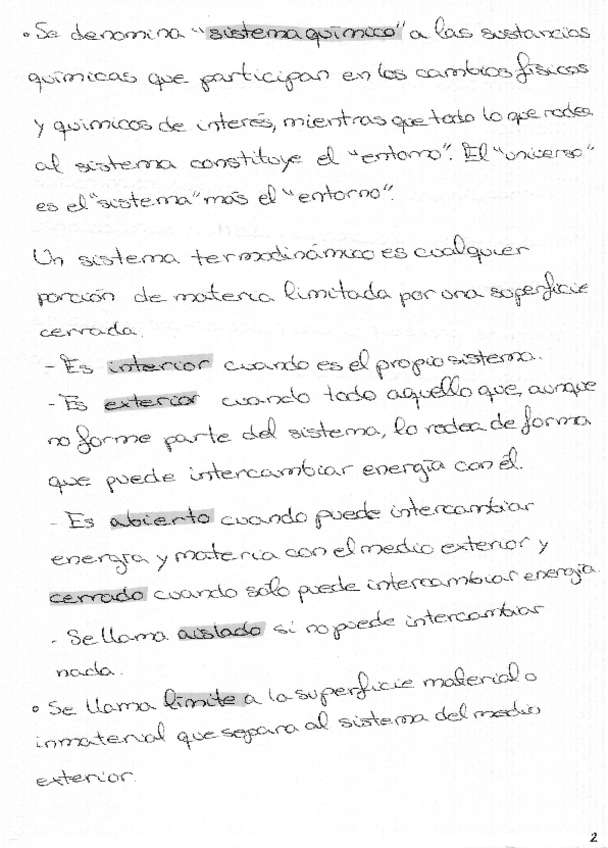 • Se denomina "sistema químico" a las sustancias
químicas que participan en los cambios físicos
y químicos de interés, mientras que todo lo que rodea
al sistema constituye el "entorno". El "universo"
es el "sistema" más el "entorno".
Un sistema termodinámico es cualquier
porción de materia limitada por una superficie
cerrada.
- Es interior cuando es el propio sistema.
- Es exterior cuando todo aquello que, aunque
no forme parte del sistema, lo rodea de forma
que puede intercambiar energía con él.
- Es abierto cuando puede intercambiar
energía y materia con el medio exterior y
cerrado cuando sólo puede intercambiar energía.
- Se llama aislado si no puede intercambiar
nada.
• Se llama límite a la superficie material o
inmaterial que separa al sistema del medio
exterior.
2